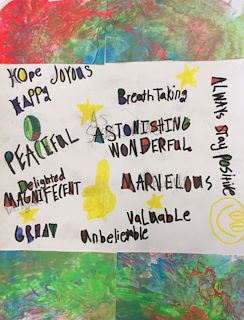 Hope Joyous
Happy
Breath Taking
PEACEFUL
ASTONISHING
WONDERFUL
Delighted
MAGNIFECENT
MARVELOUS
GREAT
Valuable
Unbelievable
ALWAYS Stay POSITIVE